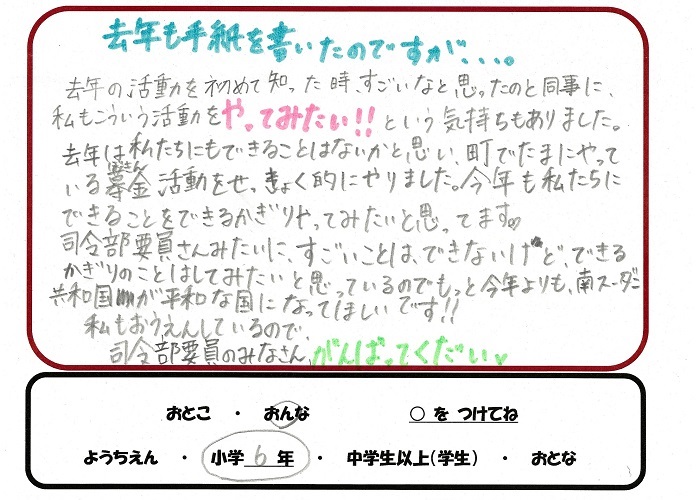 去年も手紙を書いたのですが、、、。
去年の活動を初めて知った時、すごいなと思ったのと同事に、
私もこういう活動をやってみたい!!という気持ちもありました。
去年は私たちにもできることはないかと思い、町でたまにやって
いる募金活動をせっきょく的にやりました。今年も私たちに
ぼきん
できることをできるかぎりやってみたいと思ってます。
司令部要員さんみたいに、すごいことは、できないけど、できる
かぎりのことはしてみたいと思っているのでもっと今年よりも、南スーダン
共和国が平和な国になってほしいです!!
私もおうえんしているので
司令部要員のみなさん、がんばってくだい
おとこ ・ おんな ○ を つけてね
ようちえん ・ 小学 6 年 ・ 中学生以上(学生) ・ おとな